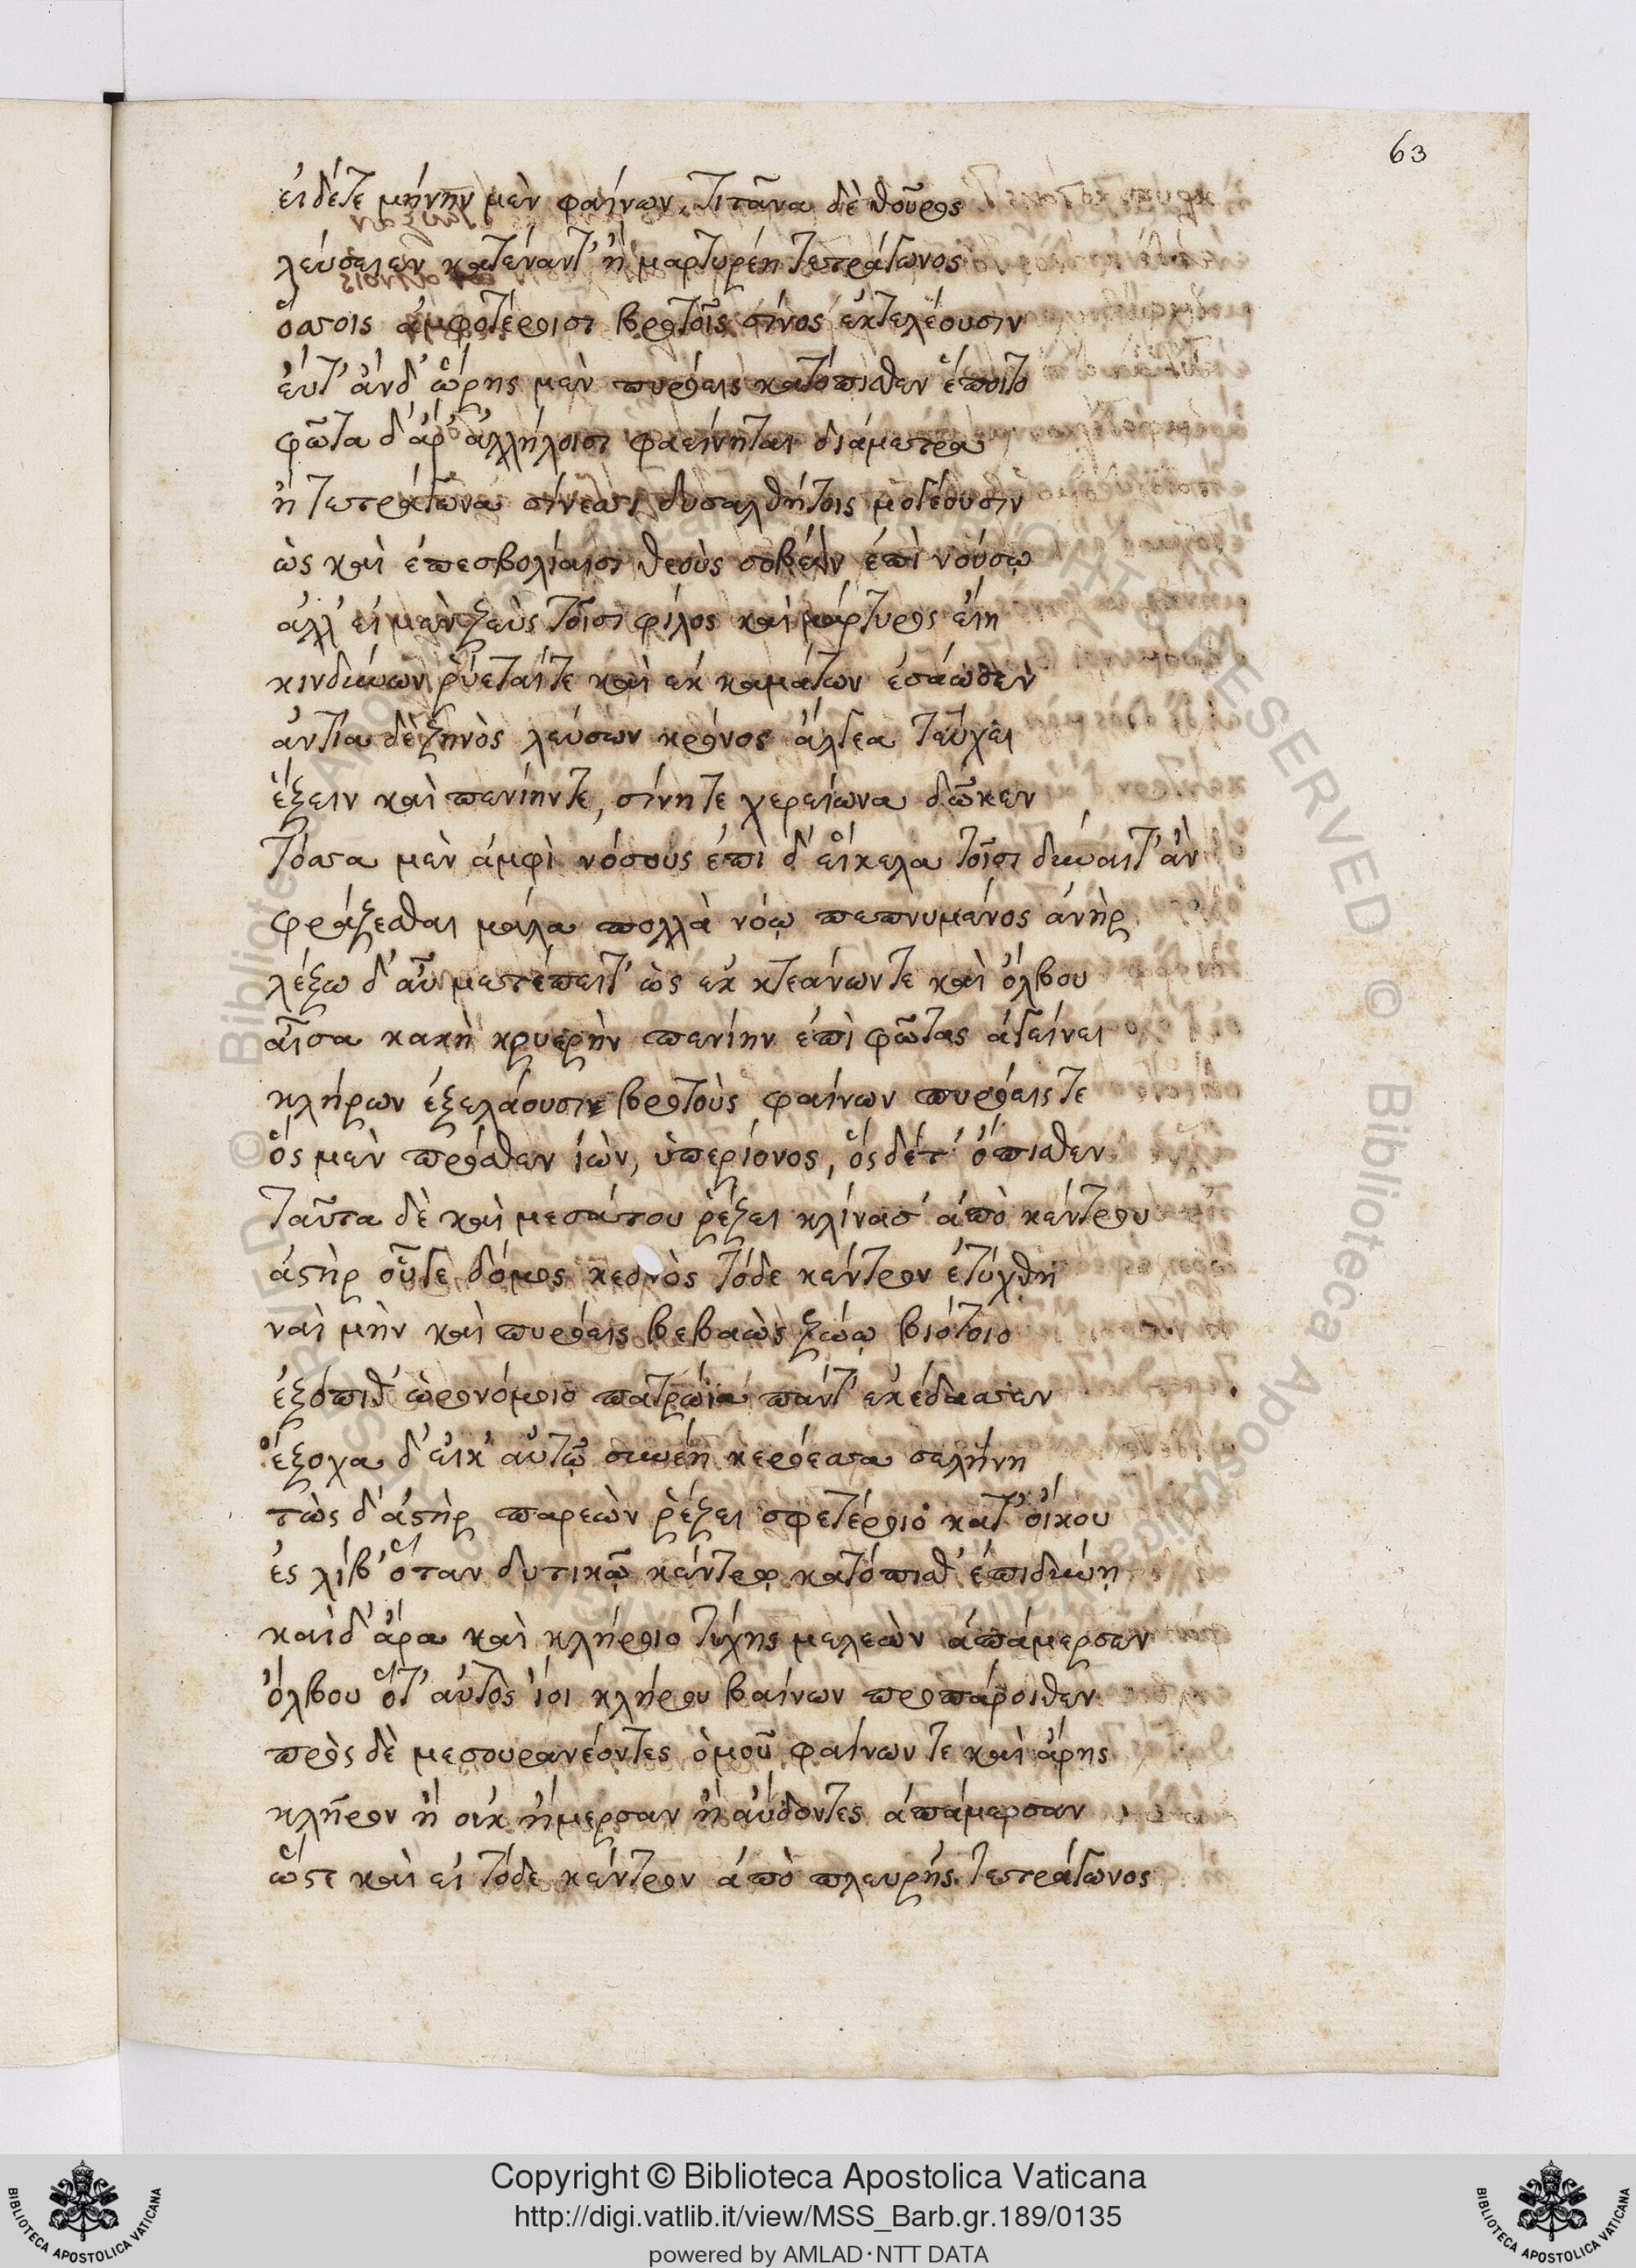 63
εἰ δέ τε μήνην μὲν φαίνων, τιτᾶνα δὲ θοῦρος
λεύσειεν κατέναντ' ἢ μαρτυρέῃ τετράγωνος
ὄσσοις ἀμφοτέροισι βροτοῖς σίνος ἐκτελέουσιν
εὖτ' ἂν δ' ὥρης μὲν πυρόεις κατόπισθεν ἕποιτο
φῶτα δ' ἄρ' ἀλλήλοισι φαείνηται διάμετρα
ἢ τετράγωνα σίνεσι δυσαλθήτοις μογέουσιν
ὡς καὶ ἐπεσβολίαισι θεοὺς σοβέειν ἐπὶ νούσῳ
ἀλλ' εἰ μὲν ζεὺς τοῖσι φίλος καὶ μάρτυρος εἴη
κινδύνων ῥύεταί τε καὶ ἐκ καμάτων ἐσάωσεν
ἀντία δὲ ζηνὸς λεύσων κρόνος ἄλγεα τεύχει
ἕξειν καὶ πενίην τε, σίνη τε χερείωνα δῶκεν
τόσσα μὲν ἀμφὶ νόσους ἐπὶ δ' εἴκελα τοῖσι δύναιτ' ἂν
φράζεσθαι μάλα πολλὰ νόῳ πεπνυμένος ἀνὴρ
λέξω δ' αὖ μετέπειτ' ὡς ἐκ κτεάνων τε καὶ ὄλβου
αἶσα κακὴ κρυερὴν πενίην ἐπὶ φῶτας ἀγείνει
κλήρων ἐξελάουσιν βροτοὺς φαίνων πυρόεις τε
ὃς μὲν πρόσθεν ἰὼν, ὑπερίονος, ὃς δέ τ' ὄπισθεν
ταῦτα δὲ καὶ μεσάτου ῥέζει κλίνασ' ἀπὸ κέντρου
ἀστὴρ οὗ γε δόμος κεδνὸς τόδε κέντρον ἐτύχθη
ναὶ μὴν καὶ πυρόεις βεβαὼς ζώῳ βιότοιο
ἐξόπιθ' ὡρονόμοιο πατρώια πάντ' ἐκέδασσεν
ἔξοχα δ' εἴκ' αὐτῷ συνέῃ κερόεσσα σελήνη
τὼς δ' ἀστὴρ παρεὼν ῥέζει σφετέροιο κατ' οἴκου
ἐς λίβ' ὅταν δυτικῷ κέντρῳ κατόπισθ' ἐπιδύνῃ
καὶ δ' ἄρα καὶ κλήροιο τύχης μελεὼν ἀπάμερσεν
ὄλβου ὅτ' αὐτὸς ἴοι κλήρου βαίνων προπάροιθεν
πρὸς δὲ μεσουρανέοντες ὁμοῦ φαίνων τε καὶ ἄρης
κλῆρον ἢ οὐκ ἤμερσαν ἢ αὔδοντες ἀπάμερσαν
ὥστε καὶ εἰ τόδε κέντρον ἀπὸ πλευρῆς τετράγωνος
Copyright © Biblioteca Apostolica Vaticana
http://digi.vatlib.it/view/MSS_Barb.gr.189/0135
powered by AMLAD·NTT DATA
BIBLIOTECA APOSTOLICA VATICANA
BIBLIOTECA APOSTOLICA VATICANA